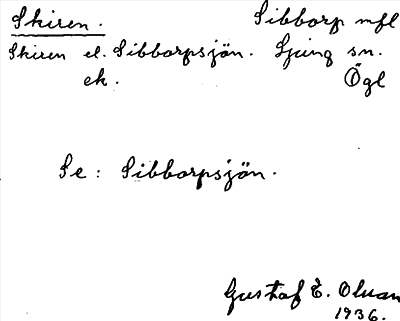 Skiren. Sibborp mfl
Skiren el. Sibborpsjön. Ljung sn.
ek. Ögl
Se: Sibborpsjön.
Gustaf E.
1936.